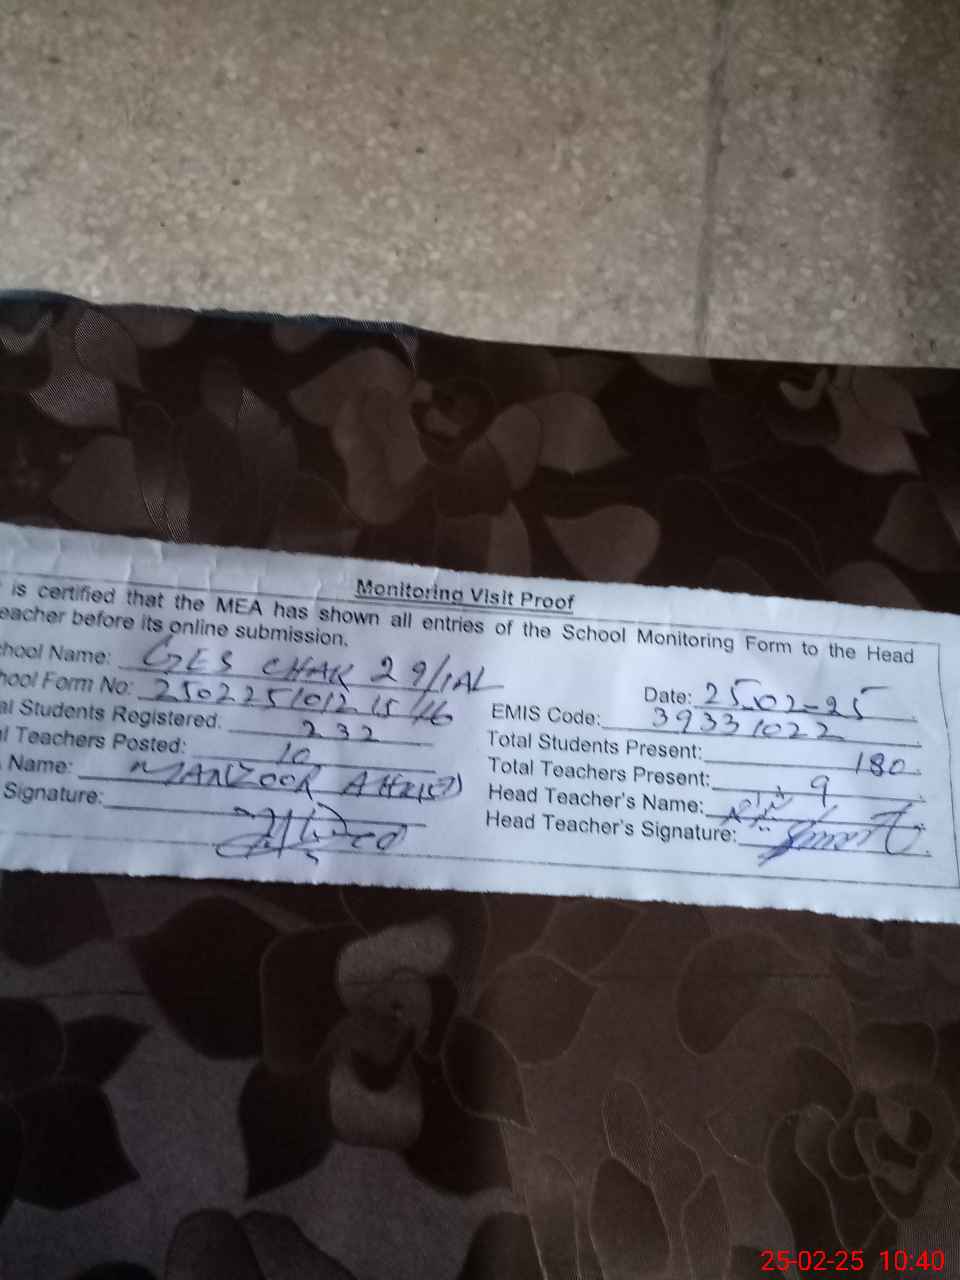 Monitoring Visit Proof
is certified that the MEA has shown all entries of the School Monitoring Form to the Head
eacher before its online submission.
hool Name: GES CHAK 29/1AL
Date: 25-02-25
hool Form No: 
EMIS Code: 39331022
al Students Registered: 232
Total Students Present: 180
l Teachers Posted: 10
Total Teachers Present: 9
Name: MANZOOR AHMED
Head Teacher's Name:
Signature:
Head Teacher's Signature:
25-02-25 10:40